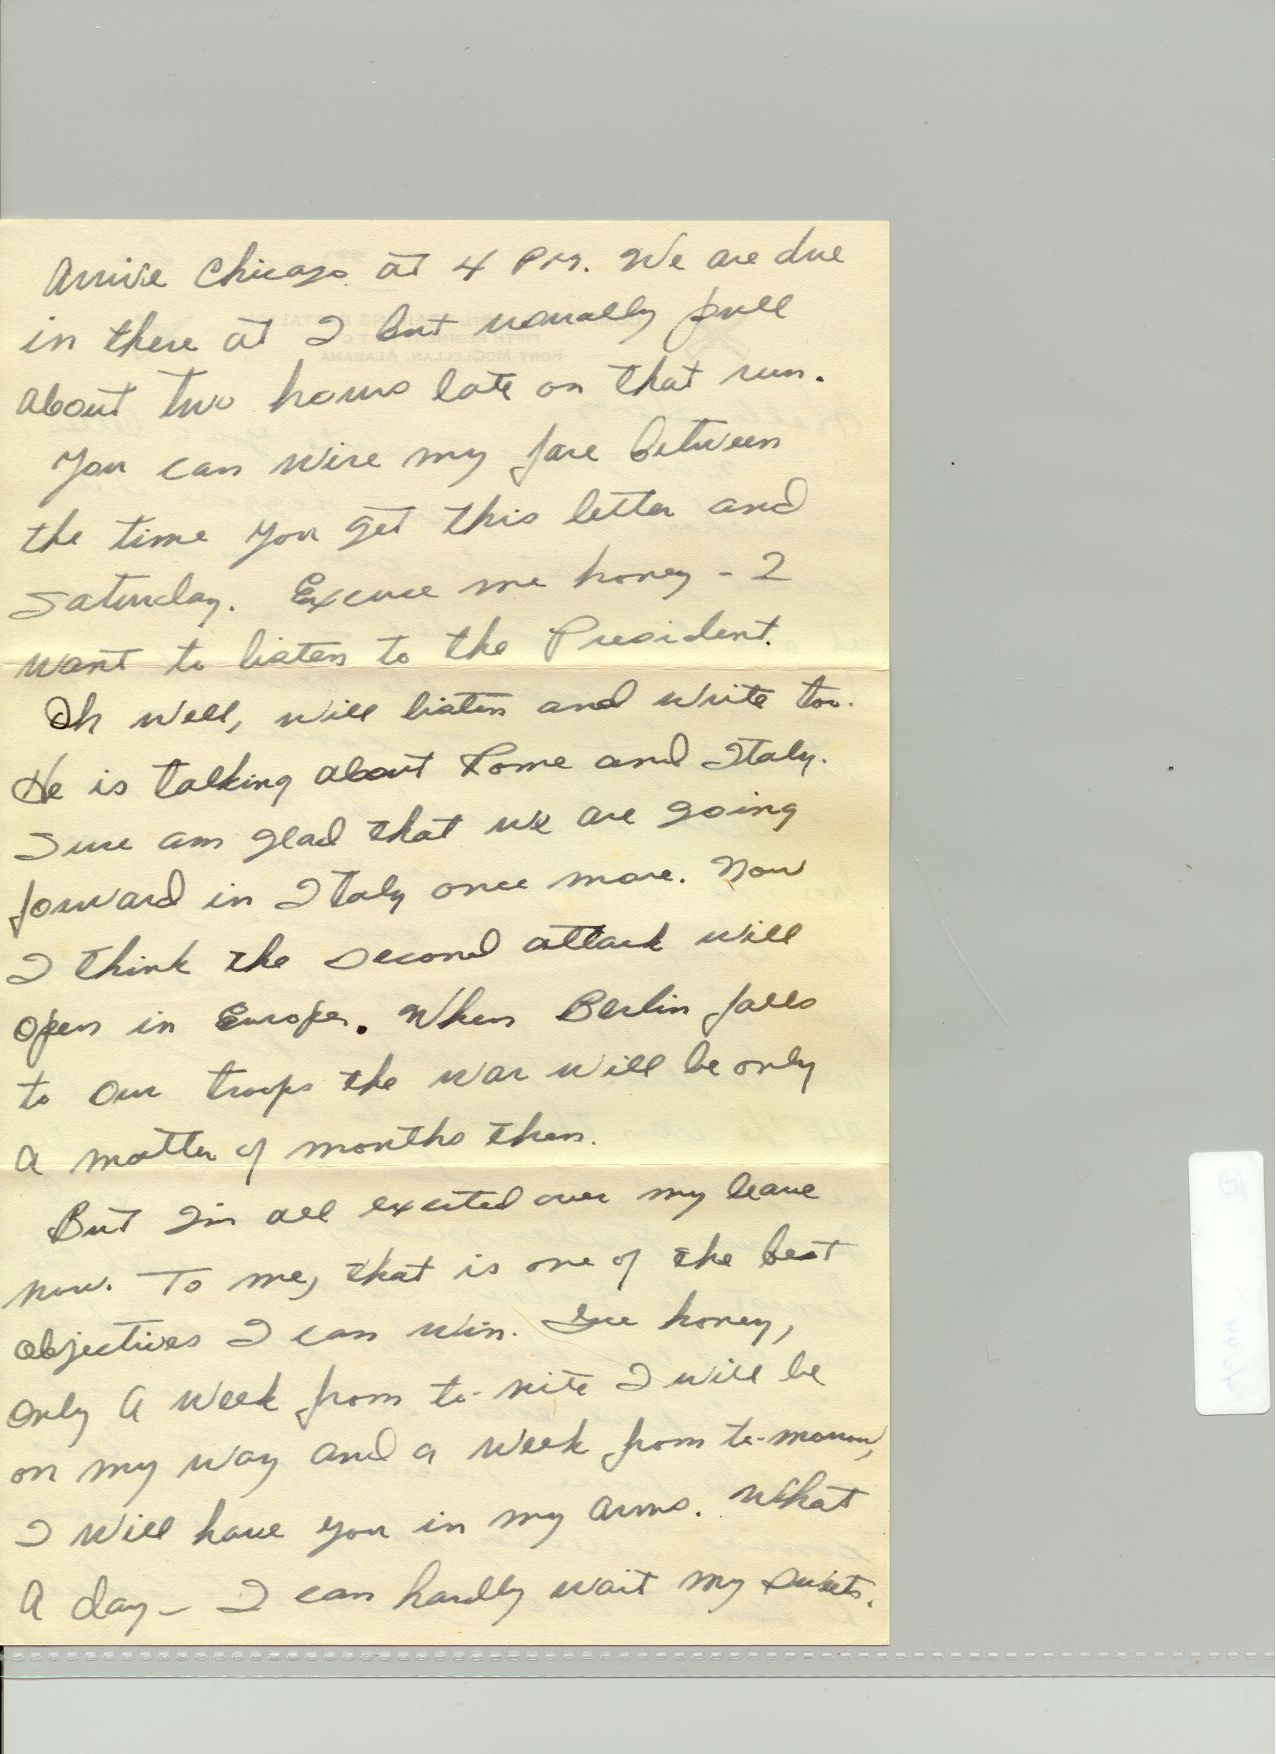 Arrive Chicago at 4 P.M. We are due
in there at 2 but usually pull
about two hours late on that run.
You can wire my fare between
the time you get this letter and
Saturday. Excuse me honey - I
want to listen to the President.
Oh well, will listen and write too.
He is talking about Rome and Italy.
Sure am glad that we are going
forward in Italy once more. Now
I think the second attack will
open in Europe. When Berlin falls
to our troops the war will be only
a matter of months then.
But I'm all excited over my leave
now. To me, that is one of the best
objectives I can win. Gee honey,
only a week from to-nite I will be
on my way and a week from to-morrow,
I will have you in my arms. What
a day - I can hardly wait my sweets.